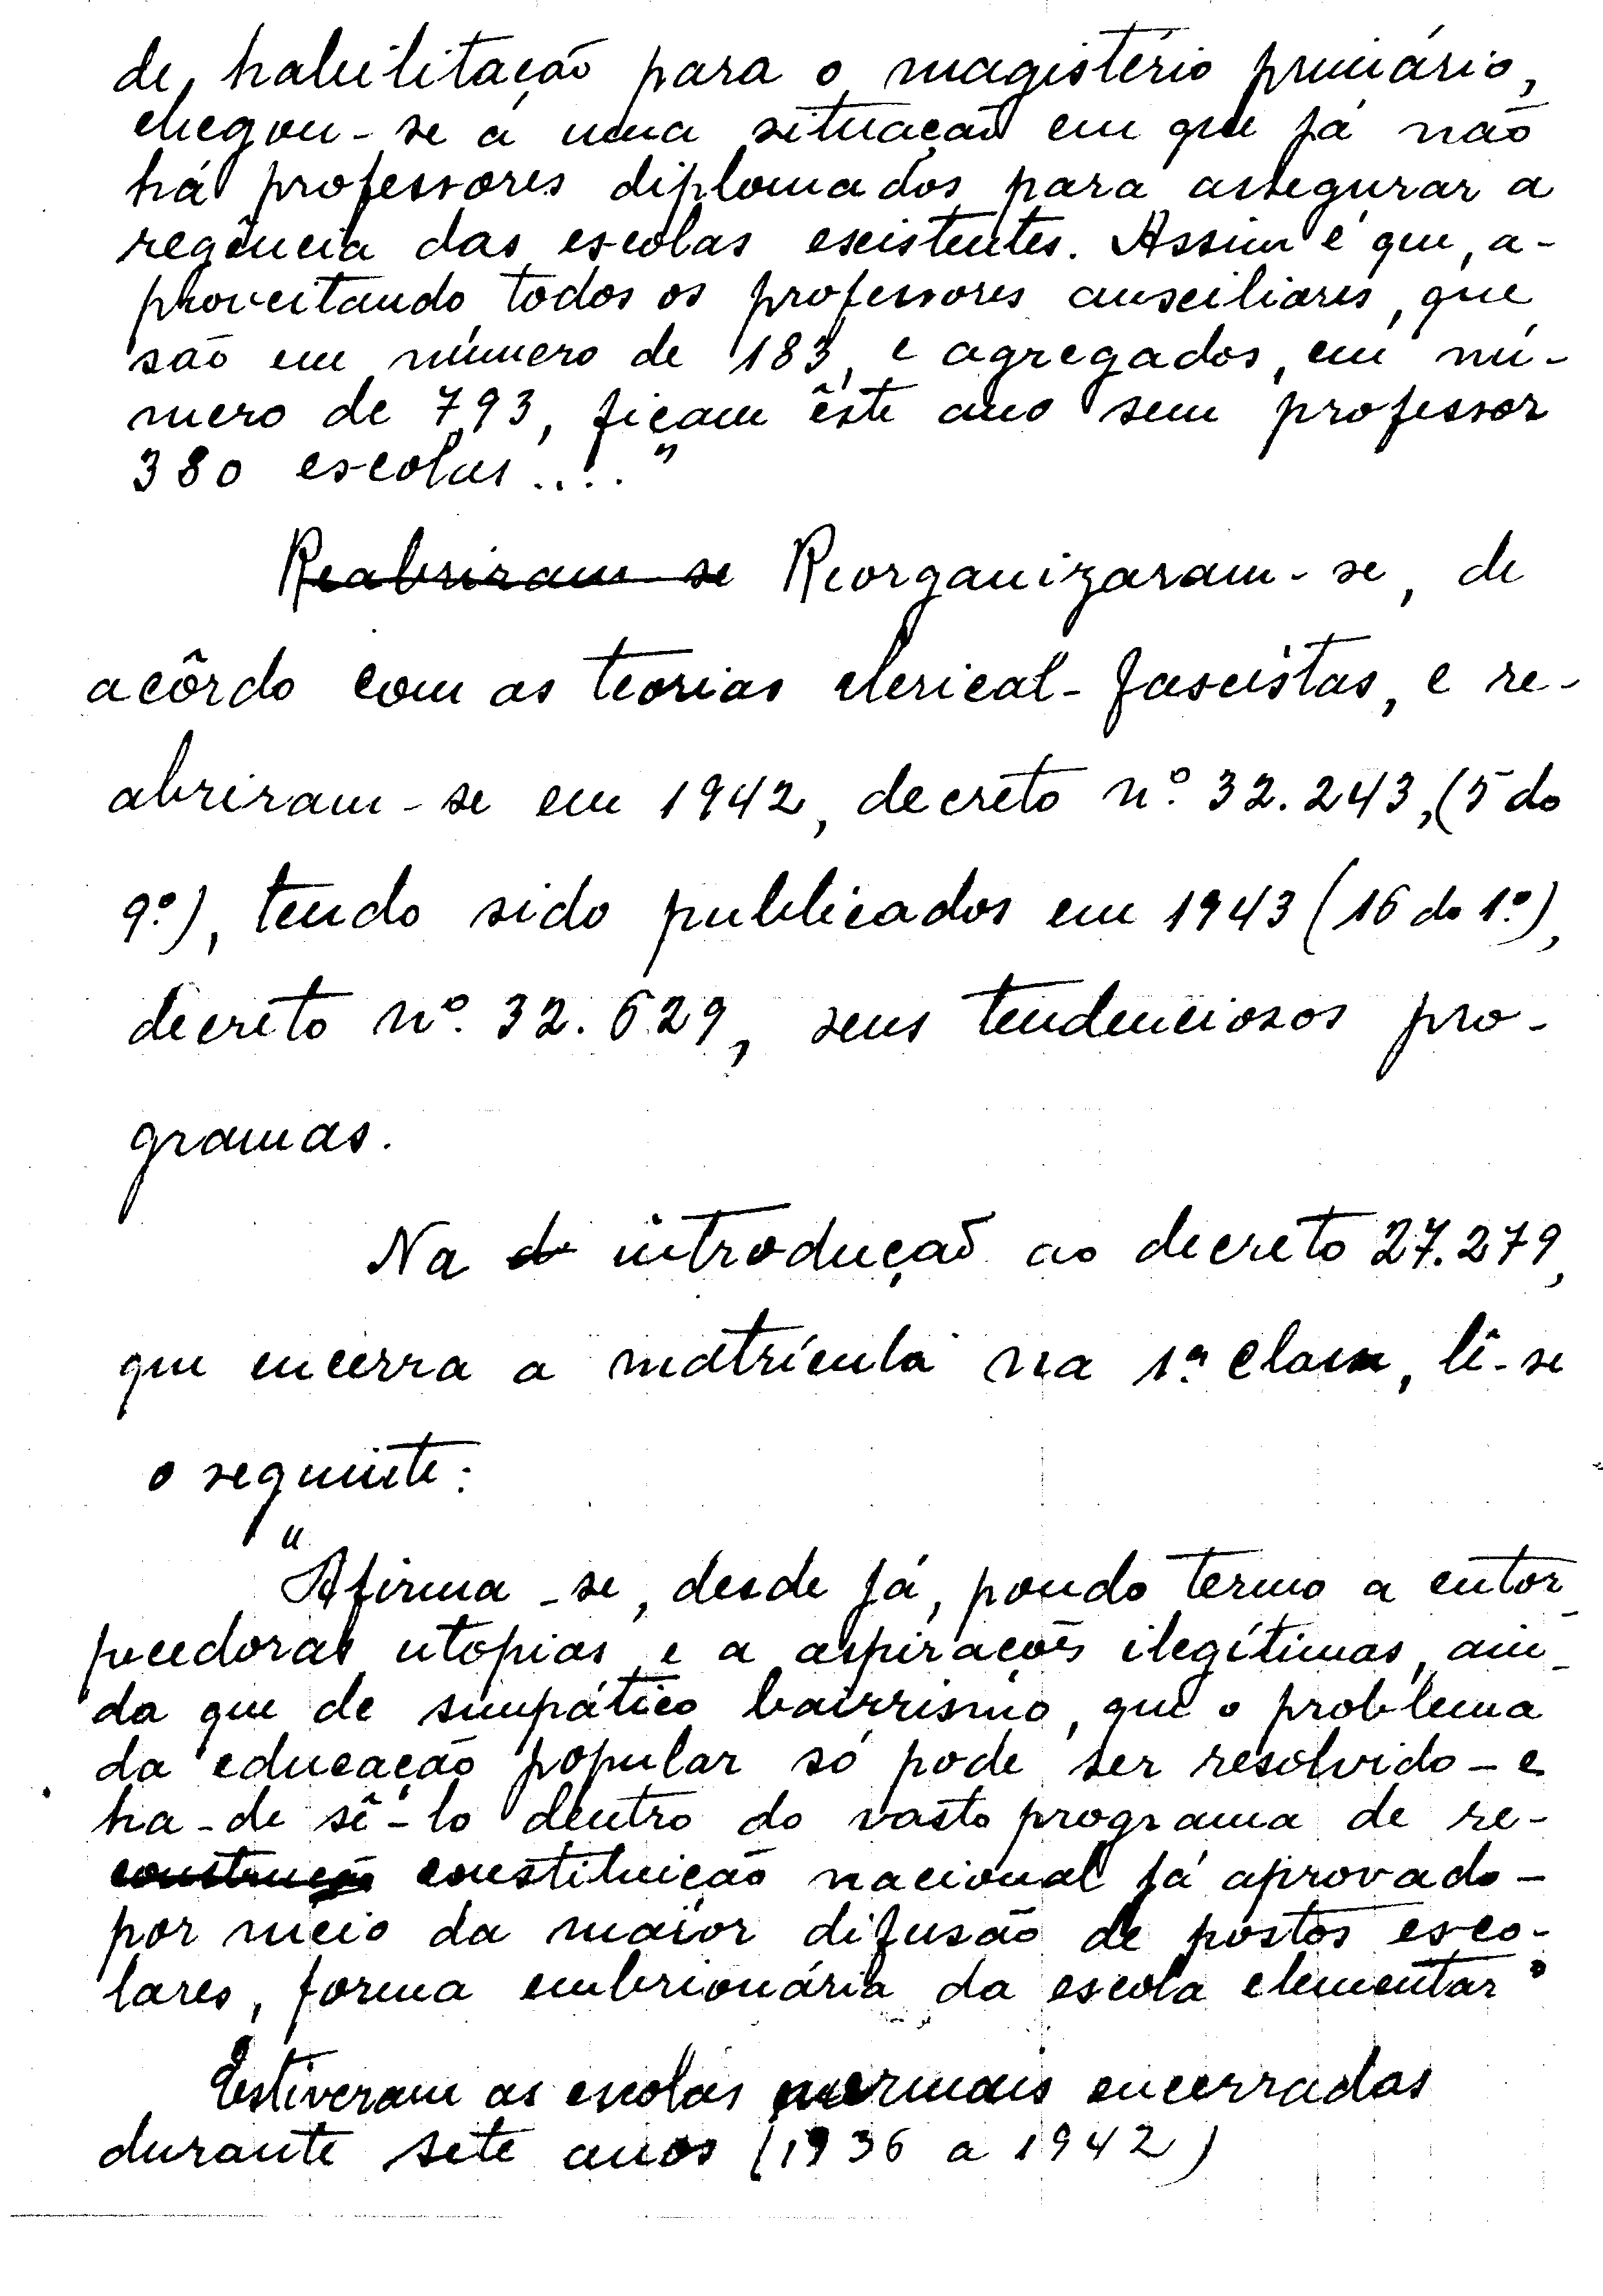 de habilitação para o magistério primário,
chegou-se à uma situação em que já não
há professores diplomados para assegurar a
regência das escolas existentes. Assim é que, a-
proveitando todos os professores auxiliares, que
são em número de 183, e agregados, em nú-
mero de 793, ficam êste ano sem professor
380 escolas...."
Reabriram-se Reorganizaram-se, de
acôrdo com as teorias clerical-fascistas, e re-
abriram-se em 1942, decreto nº. 32.243, (5 do
9º), tendo sido publicados em 1943 (16 do 1º),
decreto nº. 32.629, seus tendenciosos pro-
gramas.
Na introdução ao decreto 27.279,
que encerra a matrícula na 1ª classe, lê-se
o seguinte:
"Afirma-se, desde já, pondo termo a entor-
pecedoras utopias e a aspirações ilegítimas, ain-
da que de simpático bairrismo, que o problema
da educação popular só pode ser resolvido - e
ha-de sê-lo dentro do vasto programa de re-
construção constituição nacional já aprovado -
por meio da maior difusão de postos esco-
lares, forma embrionária da escola elementar"
Estiveram as escolas normais encerradas
durante sete anos (1936 a 1942)